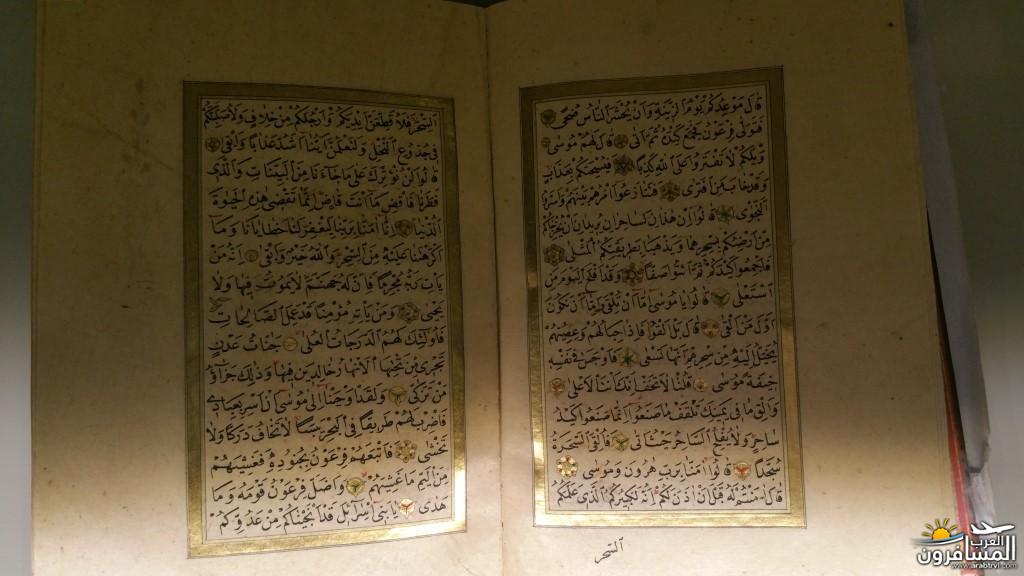 قال موعدكم يوم الزينة وان يحشر الناس ضحى
فتولى فرعون فجمع كيده ثم اتى قال لهم موسى
ويلكم لا تفتروا على الله كذبا فيسحتكم بعذاب
وقد خاب من افترى فتنازعوا امرهم بينهم واسروا
النجوى قالوا ان هذان لساحران يريدان ان يخرجاكم
من ارضكم بسحرهما ويذهبا بطريقتكم المثلى
فاجمعوا كيدكم ثم ائتوا صفا وقد افلح اليوم من
استعلى قالوا يا موسى اما ان تلقى واما ان نكون
اول من القى قال بل القوا فاذا حبالهم وعصيهم
يخيل اليه من سحرهم انها تسعى فاوجس في نفسه
خيفة موسى قلنا لا تخف انك انت الاعلى
والق ما في يمينك تلقف ما صنعوا انما صنعوا كيد
ساحر ولا يفلح الساحر حيث اتى فالقى السحرة
سجدا قالوا امنا برب هرون وموسى
قال امنتم له قبل ان اذن لكم انه لكبيركم الذى علمكم
السحر
السحر فلاقطعن ايديكم وارجلكم من خلاف ولاصلبنكم
فى جذوع النخل ولتعلمن اينا اشد عذابا وابقى
قالوا لن نؤثرك على ما جاءنا من البينات والذى
فطرنا فاقض ما انت قاض انما تقضى هذه الحيوة
الدنيا انا امنا بربنا ليغفر لنا خطايانا وما
اكرهتنا عليه من السحر والله خير وابقى انه من
يات ربه مجرما فان له جهنم لا يموت فيها ولا
يحيى ومن ياته مؤمنا قد عمل الصالحات
فاولئك لهم الدرجات العلى جنات عدن
تجرى من تحتها الانهار خالدين فيها وذلك جزاؤ
من تزكى ولقد اوحينا الى موسى ان اسر بعبادى
فاضرب لهم طريقا فى البحر يبسا لا تخاف دركا ولا
تخشى فاتبعهم فرعون بجنوده فغشيهم
من اليم ما غشيهم واضل فرعون قومه وما
هدى يا بنى اسرائيل قد انجيناكم من عدوكم
العرب
المسافرون
www.arabtrvl.com